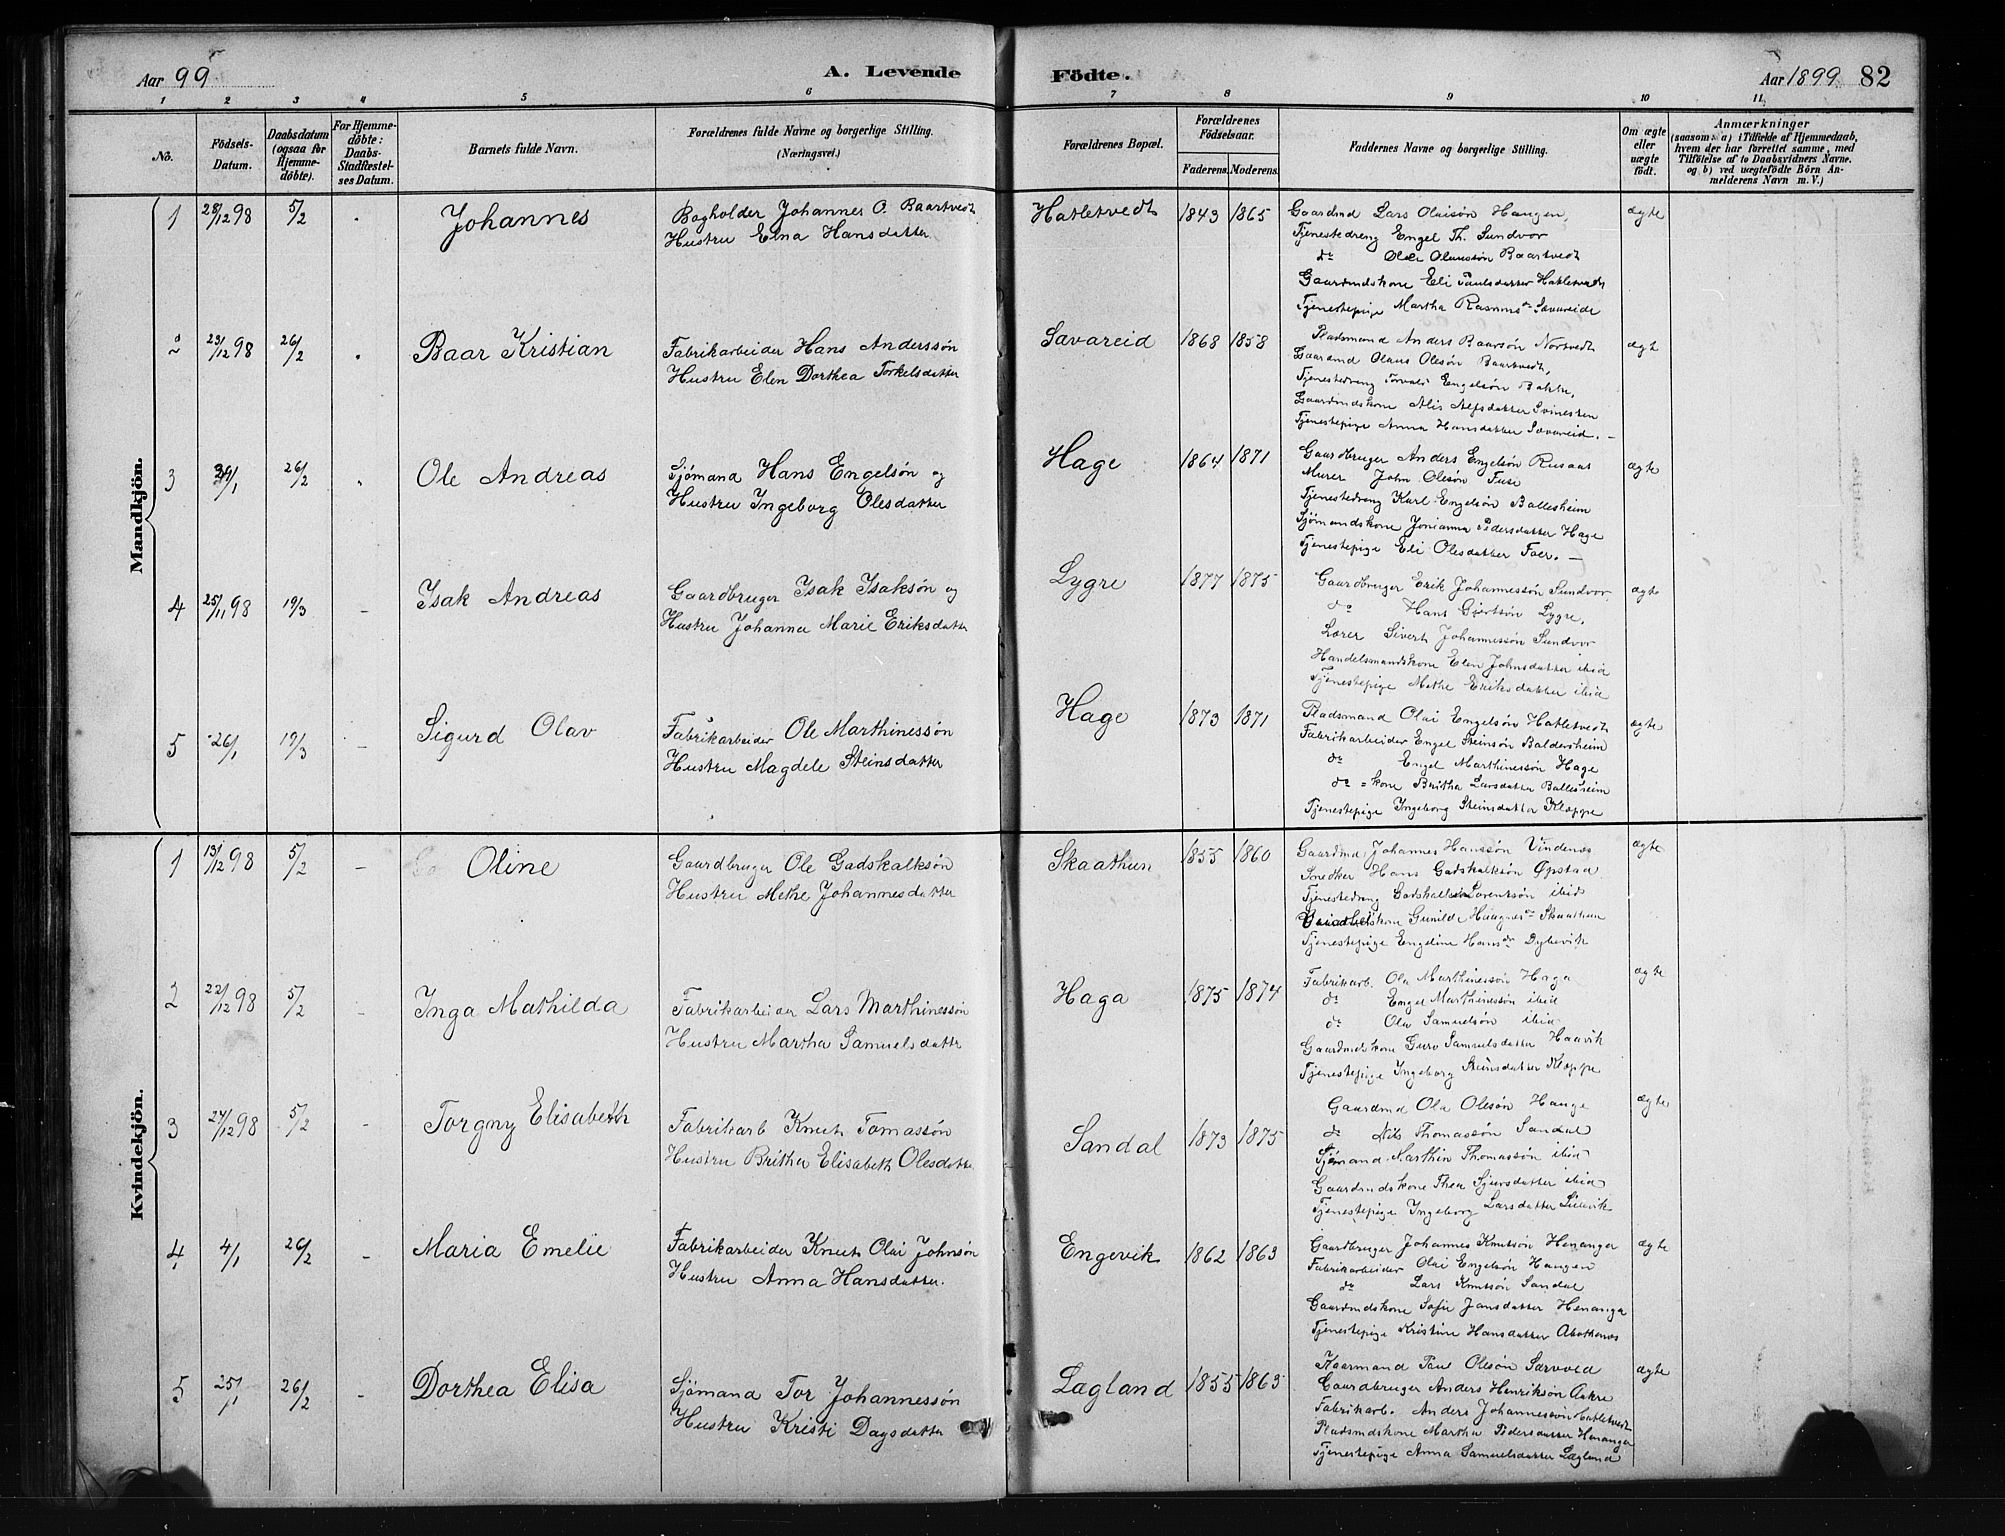 Aar 99 A. Levende Födte. Aar 1899 82
1 2 3 4 5 6 7 8 9 10 11
No.
Födsels-Datum.
Daabsdatum (ogsaa for Hjemmedöbte).
For Hjemmedöbte: Daabs-Stadfæstelses Datum.
Barnets fulde Navn.
Forældrenes fulde Navne og borgerlige Stilling. (Næringsvei.)
Forældrenes Bopæl.
Forældrenes Födselsaar.
Faderens. Moderens.
Faddernes Navne og borgerlige Stilling.
Om ægte eller uægte födt.
Anmærkninger
(saasom: a) i Tilfælde af Hjemmedaab,
hvem der har forrettet samme, med
Tilföielse af to Daabsvidners Navne.
og b) ved uægtefödte Börn An-
melderens Navn m. V.)
Mandkjön.
1 28/12 98 5/2 Johannes
Bogholder Johannes O. Baartvedt
Hustru Elna Hansdatter
Hatletvedt 1843 1865
Gaardmd Lars Olaisön Haugen,
Tjenestedreng Engel Th. Sundvor
do Ole Olaussön Baartvedt
Gaardmdskone Eli Paulsdatter Hatletvedt
Tjenestepige Martha Rasmusdr Sævareide
ægte
2 23/12 98 26/2 Baar Kristian
Fabrikarbeider Hans Anderssön
Hustru Elen Dorthea Torkelsdatter
Savareid 1868 1858
Pladsmand Anders Baarsön Nortvedt
Gaardmd Olaus Olesön Baartvedt,
Tjenestedreng Torvald Engelsön Bakke,
Gaardmdskone Alis Alfsdatter
Tjenestepige Anna Hansdatter Sævareid. –
ægt
3 26/2 Ole Andreas
Sjömand Hans Engelsön og
Hustru Ingeborg Olesdatter
Hage 1864 1871
Gaardbruger Anders Engelsön
Murer John Olesön Fuse
Tjenestedreng Karl Engelsön Ballesheim
Sjömandskone Jonianna Pedersdatter Hage
Tjenestepige Eli Olesdatter –
ægte
4 25/11 98 19/3 – Isak Andreas
Gaardbruger Isak Isaksön og
Hustru Johanna Marie Eriksdatter
Lygre 1877 1875
Gaardbruger Erik Johannessön Sundvor
do Hans Gjertsön Lygre,
Lærer Sivert Johannessön Sundvor
Handelsmandskone Elen Johnsdatter ibid
Tjenestepige Methe Eriksdatter ibid
ægte
5 26/1 19/3 – Sigurd Olav
Fabrikarbeider Ole Marthinessön
Hustru Magdele Steinsdatter
Hage 1873 1871
Pladsmand Olai Engelsön Hatletvedt
Fabrikarbeider Engel Steinsön Baldersheim
do Engel Marthinessön Hage
do = kone Britha Larsdatter Ballesheim
Tjenestepige Ingeborg Steinsdatter Kloppe
ægte
Kvindekjön.
1 13/12 98 5/2 – Oline
Gaardbruger Ole Gadskalksön
Hustru Methe Johannesdatter
Skaathun 1855 1860
Gaardmd Johannes Hanssön Vindenes
Snedker Hans Gadskalksön Øpstad
Tjenestedreng Gadskalk Lorentsön ibid
kone Gunilde Haagnesdr Skaathun
Tjenestepige Engeline Hansdr Dybevik
ægte
2 22/12 98 5/2 – Inga Mathilda
Fabrikarbeider Lars Marthinessön
Hustru Martha Samuelsdattr
Haga 1875 1874
Fabrikarb. Ola Marthinessön Haga
do Engel Marthinessön ibid
do Ola Samuelsön ibid
Gaardmdskone Guro Samuelsdatter Haavik
Tjenestepige Ingeborg Steinsdatter Kloppe
ægte
3 27/12 98 5/2 – Torgny Elisabeth
Fabrikarb Knut Tomassön
Hustru Britha Elisabeth Olesdatter
Sandal 1873 1875
Gaardmd Ola Olesön Hauge
do Nils Thomassön Sandal
Sjömand Marthin Thomassön ibid
Gaardmdskone Thea Sjursdatter ibid
Tjenestepige Ingeborg Larsdatter
ægte
4 4/1 26/2 – Maria Emelie
Fabrikarbeider Knut Olai Johnsön
Hustru Anna Hansdatter.
Engevik 1862 1863
Gaardbruger Johannes Knutsön Henanger
Fabrikarbeider Olai Engelsön Haugen
do Lars Knutsön Sandal
Gaardmdskone Sofie Jansdatter Henanger
Tjenestepige Kristine Hansdatter
ægte
5 25/1 26/2 – Dorthea Elisa
Sjömand Tor Johannessön
Hustru Kristi Dagsdatter
Lægland 1855 1863
Kaarmand Paul Olesön
Gaardbruger Anders Henriksön Aakre
Fabrikarb. Anders Johannessön Hatletvedt
Pladsmdskone Martha Pedersdatter Henanger
Tjenestepige Anna Samuelsdatter Lægland
ægte